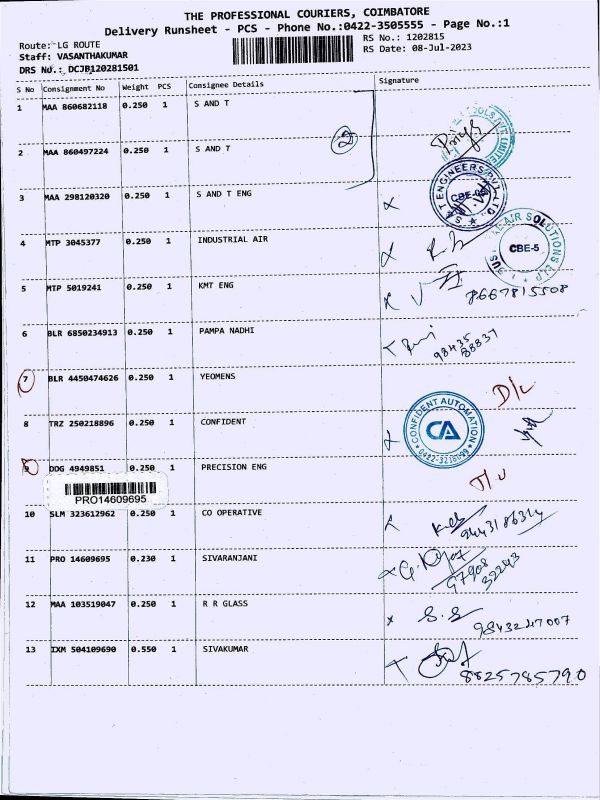 THE PROFESSIONAL COURIERS, COIMBATORE
Delivery Runsheet - PCS - Phone No.:0422-3505555 - Page No.:1
Route: LG ROUTE RS No.: 1202815
Staff: VASANTHAKUMAR RS Date: 08-Jul-2023
DRS No.: DCJB120281501
S No Consignment No Weight PCS Consignee Details Signature
1 MAA 860682118 0.250 1 S AND T
2 MAA 860497224 0.250 1 S AND T
3 MAA 298120320 0.250 1 S AND T ENG
S & T ENGINEERS PVT. LTD. CBE-
4 MTP 3045377 0.250 1 INDUSTRIAL AIR
AIR SOLUTIONS LLP CBE-5
5 MTP 5019241 0.250 1 KMT ENG 8667815508
6 BLR 6850234913 0.250 1 PAMPA NADHI 98435 88837
7 BLR 4450474626 0.250 1 YEOMENS D/L
8 TRZ 250218896 0.250 1 CONFIDENT
CONFIDENT AUTOMATION CA
9 DDG 4949851 0.250 1 PRECISION ENG
PRO14609695
10 SLM 323612962 0.250 1 CO OPERATIVE
11 PRO 14609695 0.230 1 SIVARANJANI 97908 32243
12 MAA 103519047 0.250 1 R R GLASS S.S 9843247007
13 IXM 504109690 0.550 1 SIVAKUMAR 8825785790